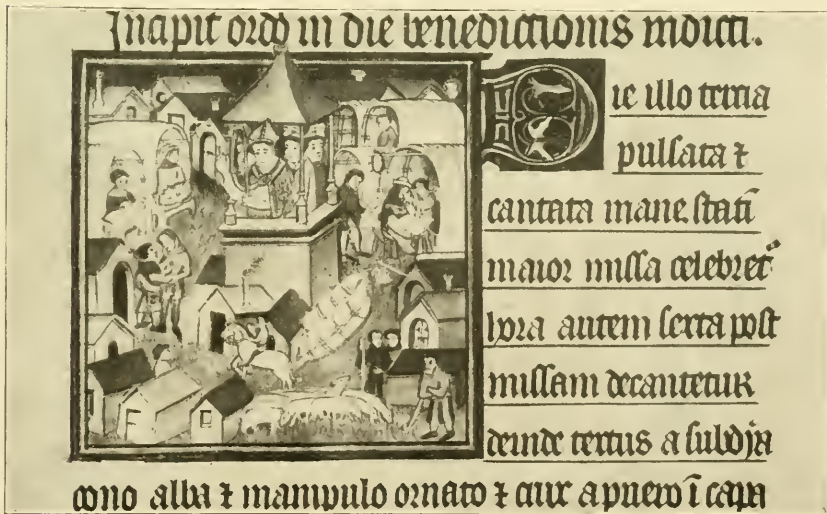 Incipit ordo in die benedictionis indicti.
Die illo tercia
pulsata ⁊
cantata mane. stati͞
maior missa celebret᷒
hora autem sexta post
missam decantetur
deinde textus a subdya
cono alba ⁊ manipulo ornato ⁊ crux a puero ī capa